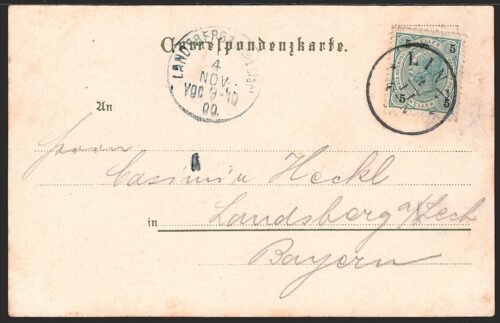 Correspondenzkarte.
LANDSBERG
4
NOV.
00.
5 5
LIN
5 HELLER 5
An
Herrn
Casimir Heckl
in Landsberg a/Lech
Bayern